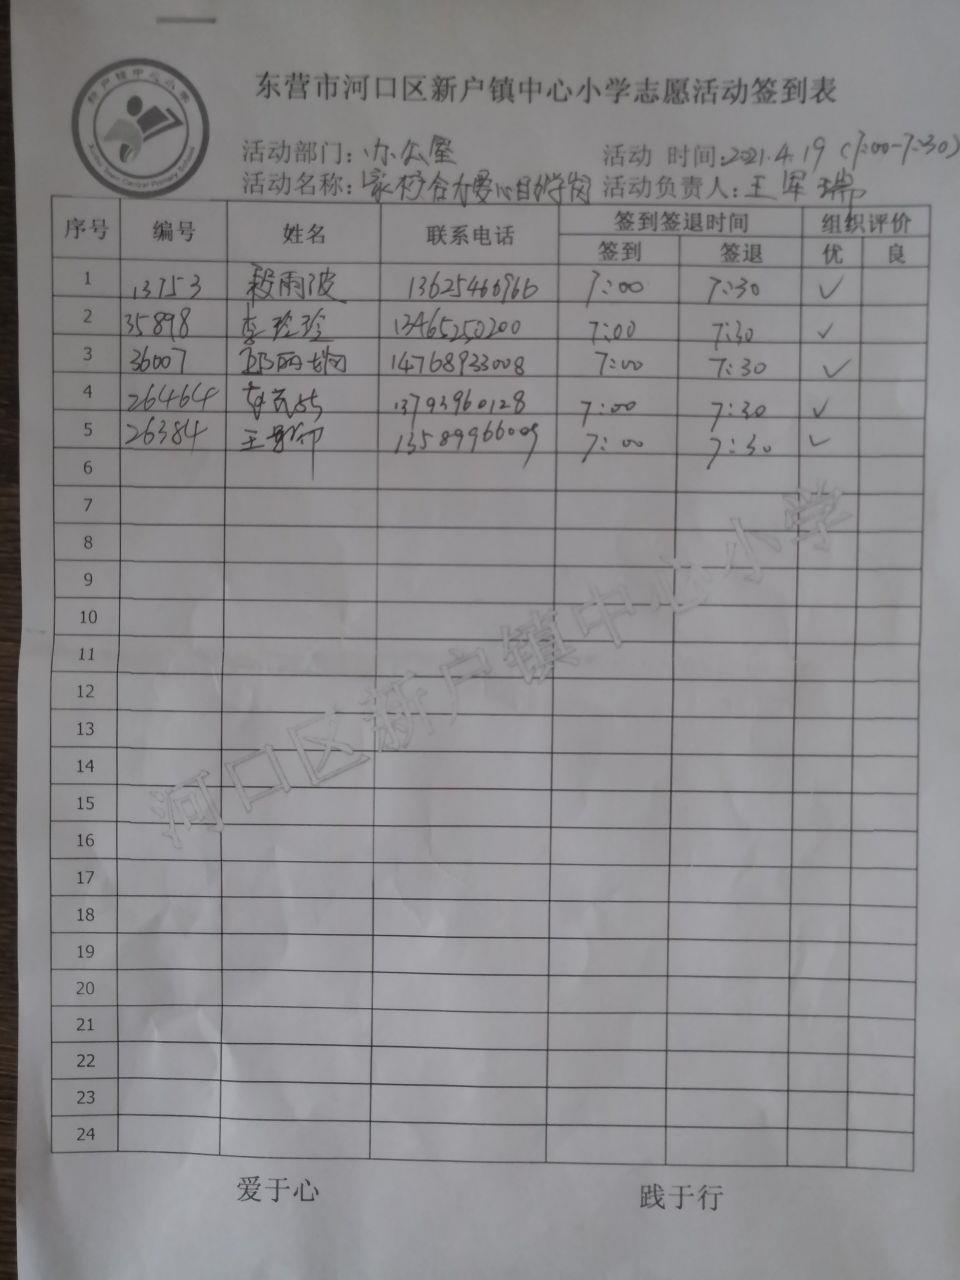 新户镇中心小学
Xinhu Town Central Primary School
东营市河口区新户镇中心小学志愿活动签到表
活动部门：办公室 活动 时间：2021.4.19（7:00-7:30）
活动名称：家校合力爱心自护学岗 活动负责人：王军瑞
序号 编号 姓名 联系电话 签到签退时间 组织评价
签到 签退 优 良
1 13753 段雨波 13625466966 7:00 7:30 ✓
2 35898 李玲玲 13465250200 7:00 7:30 ✓
3 36007 邱丽娟 14768933008 7:00 7:30 ✓
4 26464 13793960128 7:00 7:30 ✓
5 26384 王 13589966009 7:00 7:30 ✓
6
7
8
9
10
11
12
13
14
15
16
17
18
19
20
21
22
23
24
河口区新户镇中心小学
爱于心 践于行